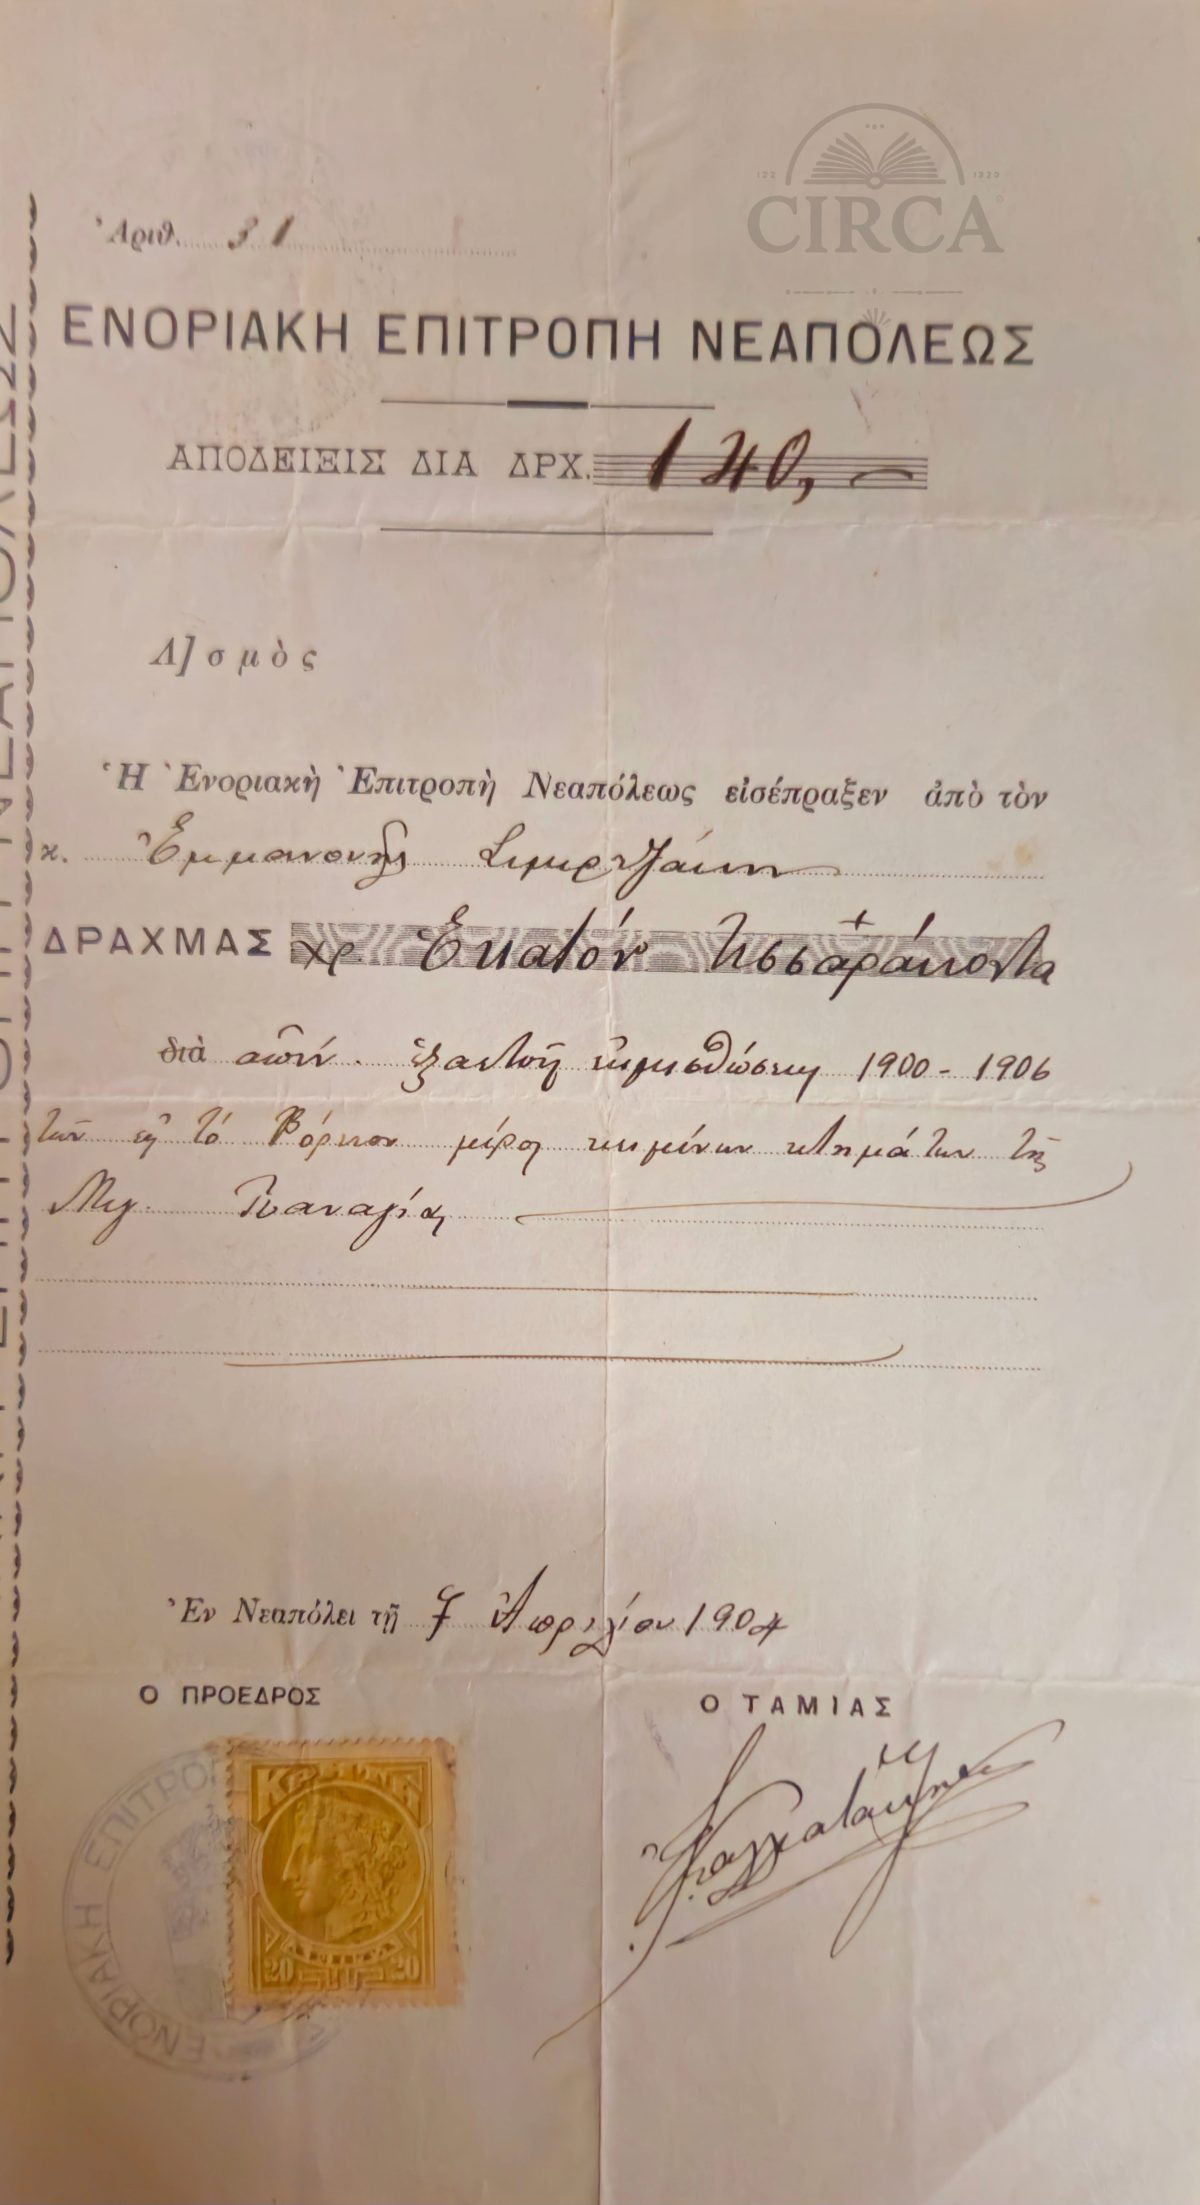 CIRCA
Ἀριθ. 31
ΕΝΟΡΙΑΚΗ ΕΠΙΤΡΟΠΗ ΝΕΑΠΟΛΕΩΣ
ΑΠΟΔΕΙΞΙΣ ΔΙΑ ΔΡΧ. 140,
Λ]σμὸς
Ἡ Ἐνοριακὴ Ἐπιτροπὴ Νεαπόλεως εἰσέπραξεν ἀπὸ τὸν
κ. Ἐμμανουὴλ
ΔΡΑΧΜΑΣ χρ Ἑκατόν τεσσαράκοντα
διὰ 1900 - 1906
τῶν εἰς τό Βόρειον μέρος κειμένων κτημάτων τῆς
Μεγ. Παναγίας
Ἐν Νεαπόλει τῇ 7 Ἀπριλίου 1904
Ο ΠΡΟΕΔΡΟΣ
Ο ΤΑΜΙΑΣ
ΕΝΟΡΙΑΚΗ ΕΠΙΤΡΟ
ΚΡΗΤΗ
ΛΕΠΤΑ
20 20